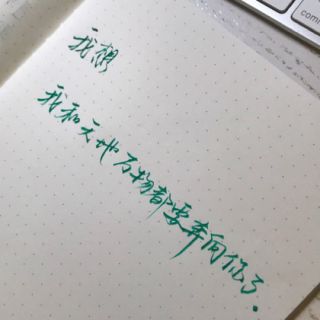 我想
我和天地万物都要奔向你了.
comm